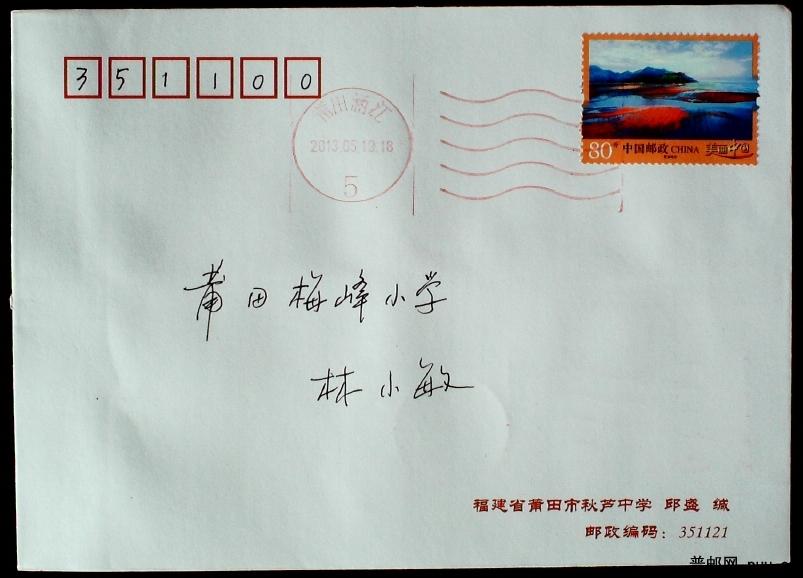 351100
莆田涵江
2013.05.13.18
5
80分 中国邮政 CHINA 美丽中国
莆田梅峰小学
林小敏
福建省莆田市秋芦中学 邱盛 缄
邮政编码：351121
普邮网